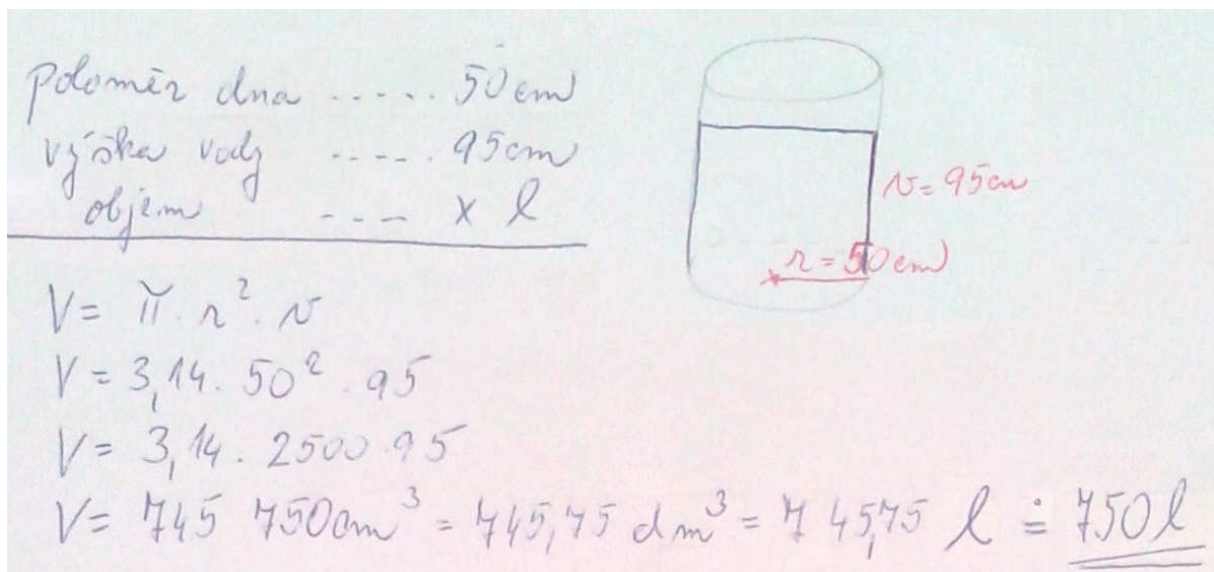 poloměr dna ..... 50 cm
výška vody ..... 95 cm
objem --- x l
v = 95 cm
r = 50 cm
V = π . r² . v
V = 3,14 . 50² . 95
V = 3,14 . 2500 . 95
V = 745 750 cm³ = 745,75 dm³ = 745,75 l ≐ 750 l